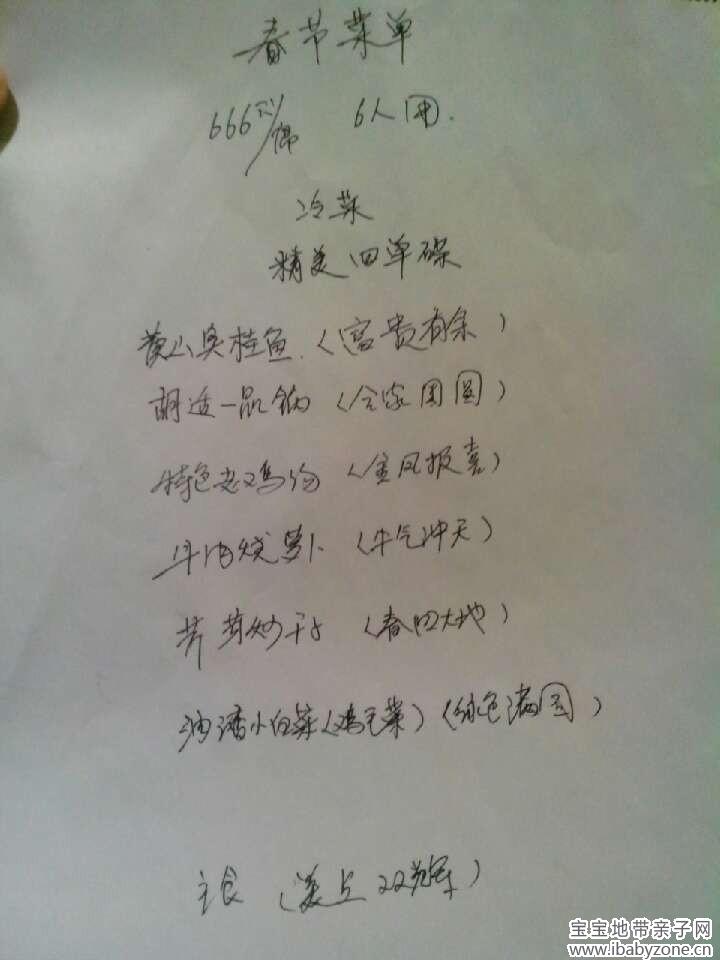 春节菜单
666元/席 6人用.
冷菜
精美四单碟
黄山臭桂鱼(富贵有余)
胡适一品锅(合家团圆)
特色老鸡汤(金凤报喜)
牛肉烧萝卜(牛气冲天)
芹芽炒干子(春回大地)
油渍小白菜(鸡毛菜)(绿色满园)
主食(美点双辉)
宝宝地带亲子网
www.ibabyzone.cn